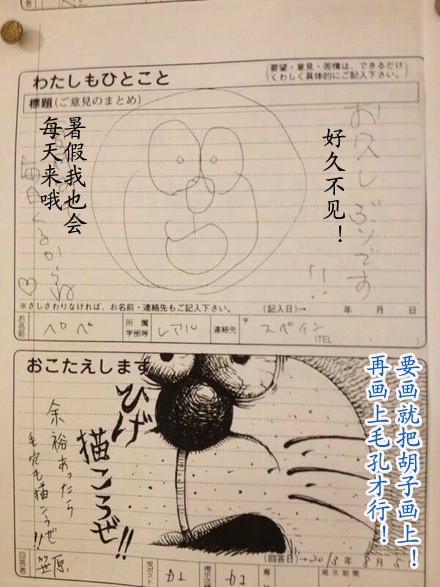 わたしもひとこと
(要望・意見・苦情は、できるだけ
くわしく具体的にご記入下さい。)
標題(ご意見のまとめ)
お久しぶりです!!
好久不见！
暑假我也会
每天来哦
※さしさわりなければ、お名前・連絡先もご記入下さい。
(記入日)→ 年 月 日
お名前 ペペ
所属学部等 レアル
連絡先 〒 スペイン
(TEL
おこたえします
ひげ
描こうぜ!!
余裕あったら
毛穴も描こうぜ!!
笠原
要画就把胡子画上！
再画上毛孔才行！
(回答日)→2013年8月5日
回答者
掲示期間